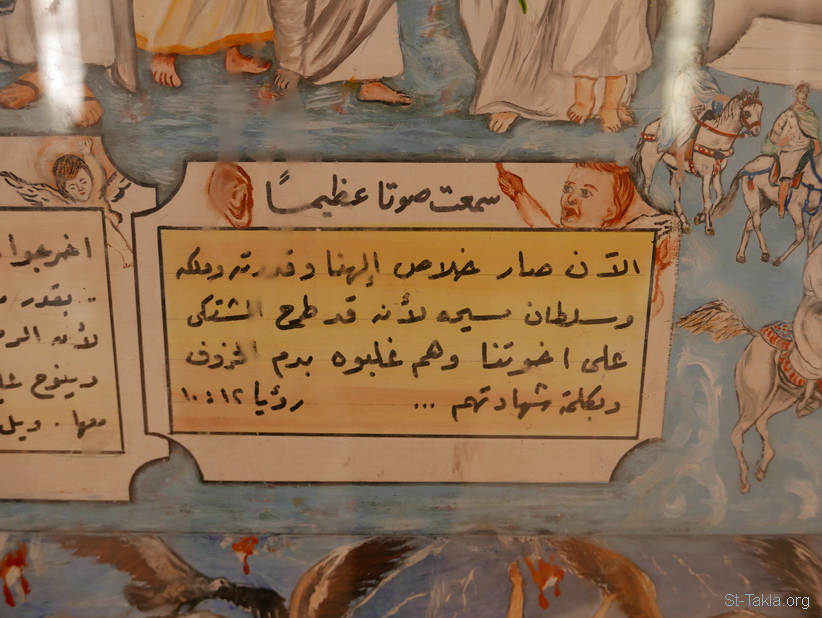 سمعت صوتا عظيمًا
الآن صار خلاص إلهنا وقدرته وملكه
وسلطان مسيحه لأنه قد طرح المشتكى
على اخوتنا وهم غلبوه بدم الخروف
وبكلمة شهادتهم ... رؤيا ١٢ : ١٠
اخرجوا
.. بقدر
لأن
وينوح
معها . ويل
St-Takla.org